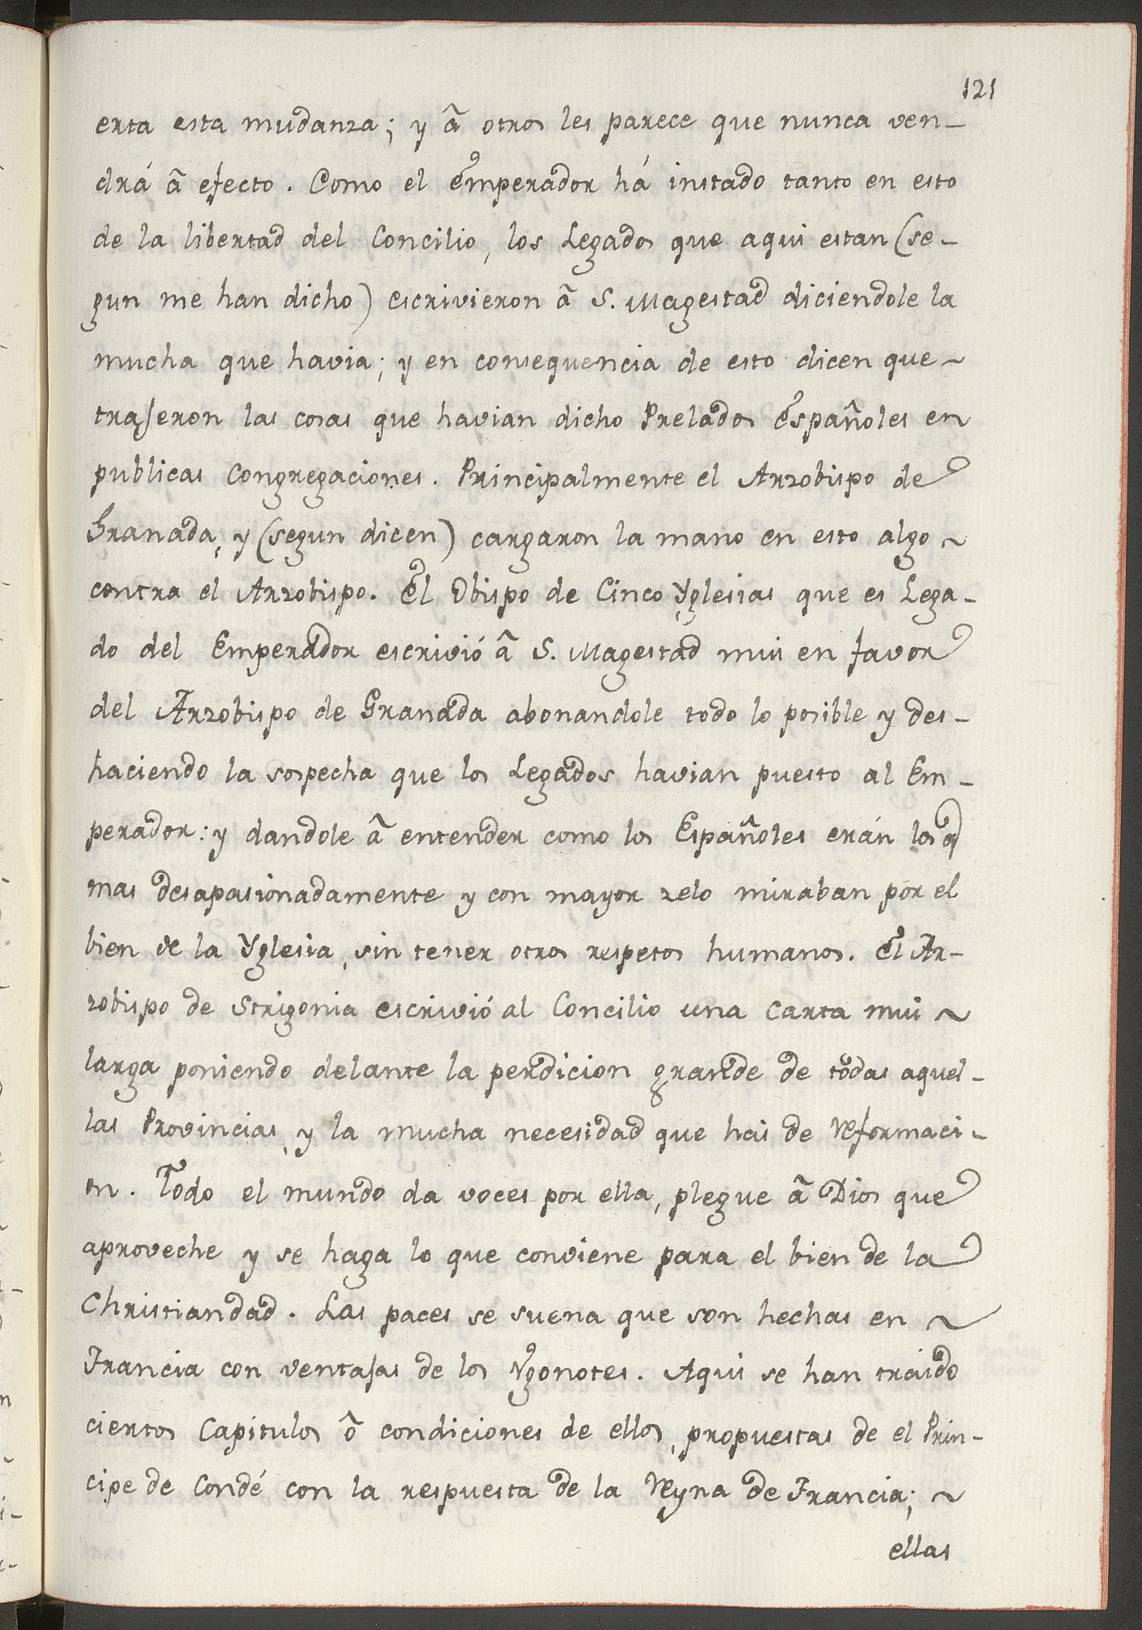 121
erta esta mudanza; y â otros les parece que nunca ven-
drá â efecto. Como el Emperador há instado tanto en esto
de la libertad del Concilio, los Legados que aqui estan (se-
gun me han dicho) escrivieron â S. Magestad diciendole la
mucha que havia; y en consequencia de esto dicen que ~
trajeron las cosas que havian dicho Prelados Españoles en
publicas Congregaciones. Principalmente el Arzobispo de
Granada, y (segun dicen) cargaron la mano en esto algo ~
contra el Arzobispo. El Obispo de Cinco Yglesias que es Lega-
do del Emperador escrivió â S. Magestad mui en favor
del Arzobispo de Granada abonandole todo lo posible y des-
haciendo la sospecha que los Legados havian puesto al Em-
perador: y dandole â entender como los Españoles erán los q
mas desapasionadamente y con mayor zelo miraban por el
bien de la Yglesia, sin tener otros respetos humanos. El Ar-
zobispo de Strigonia escrivió al Concilio una Carta mui ~
larga poniendo delante la perdicion grande de todas aquel-
las Provincias, y la mucha necesidad que hai de Reformaci-
on. Todo el mundo da voces por ella, plegue â Dios que
aproveche y se haga lo que conviene para el bien de la
Christiandad. Las paces se suena que son hechas en ~
Francia con ventajas de los Vgonotes. Aqui se han traido
ciertos Capitulos ô condiciones de ellos, propuestas de el Prin-
cipe de Condé con la respuesta de la Reyna de Francia; ~
ellas